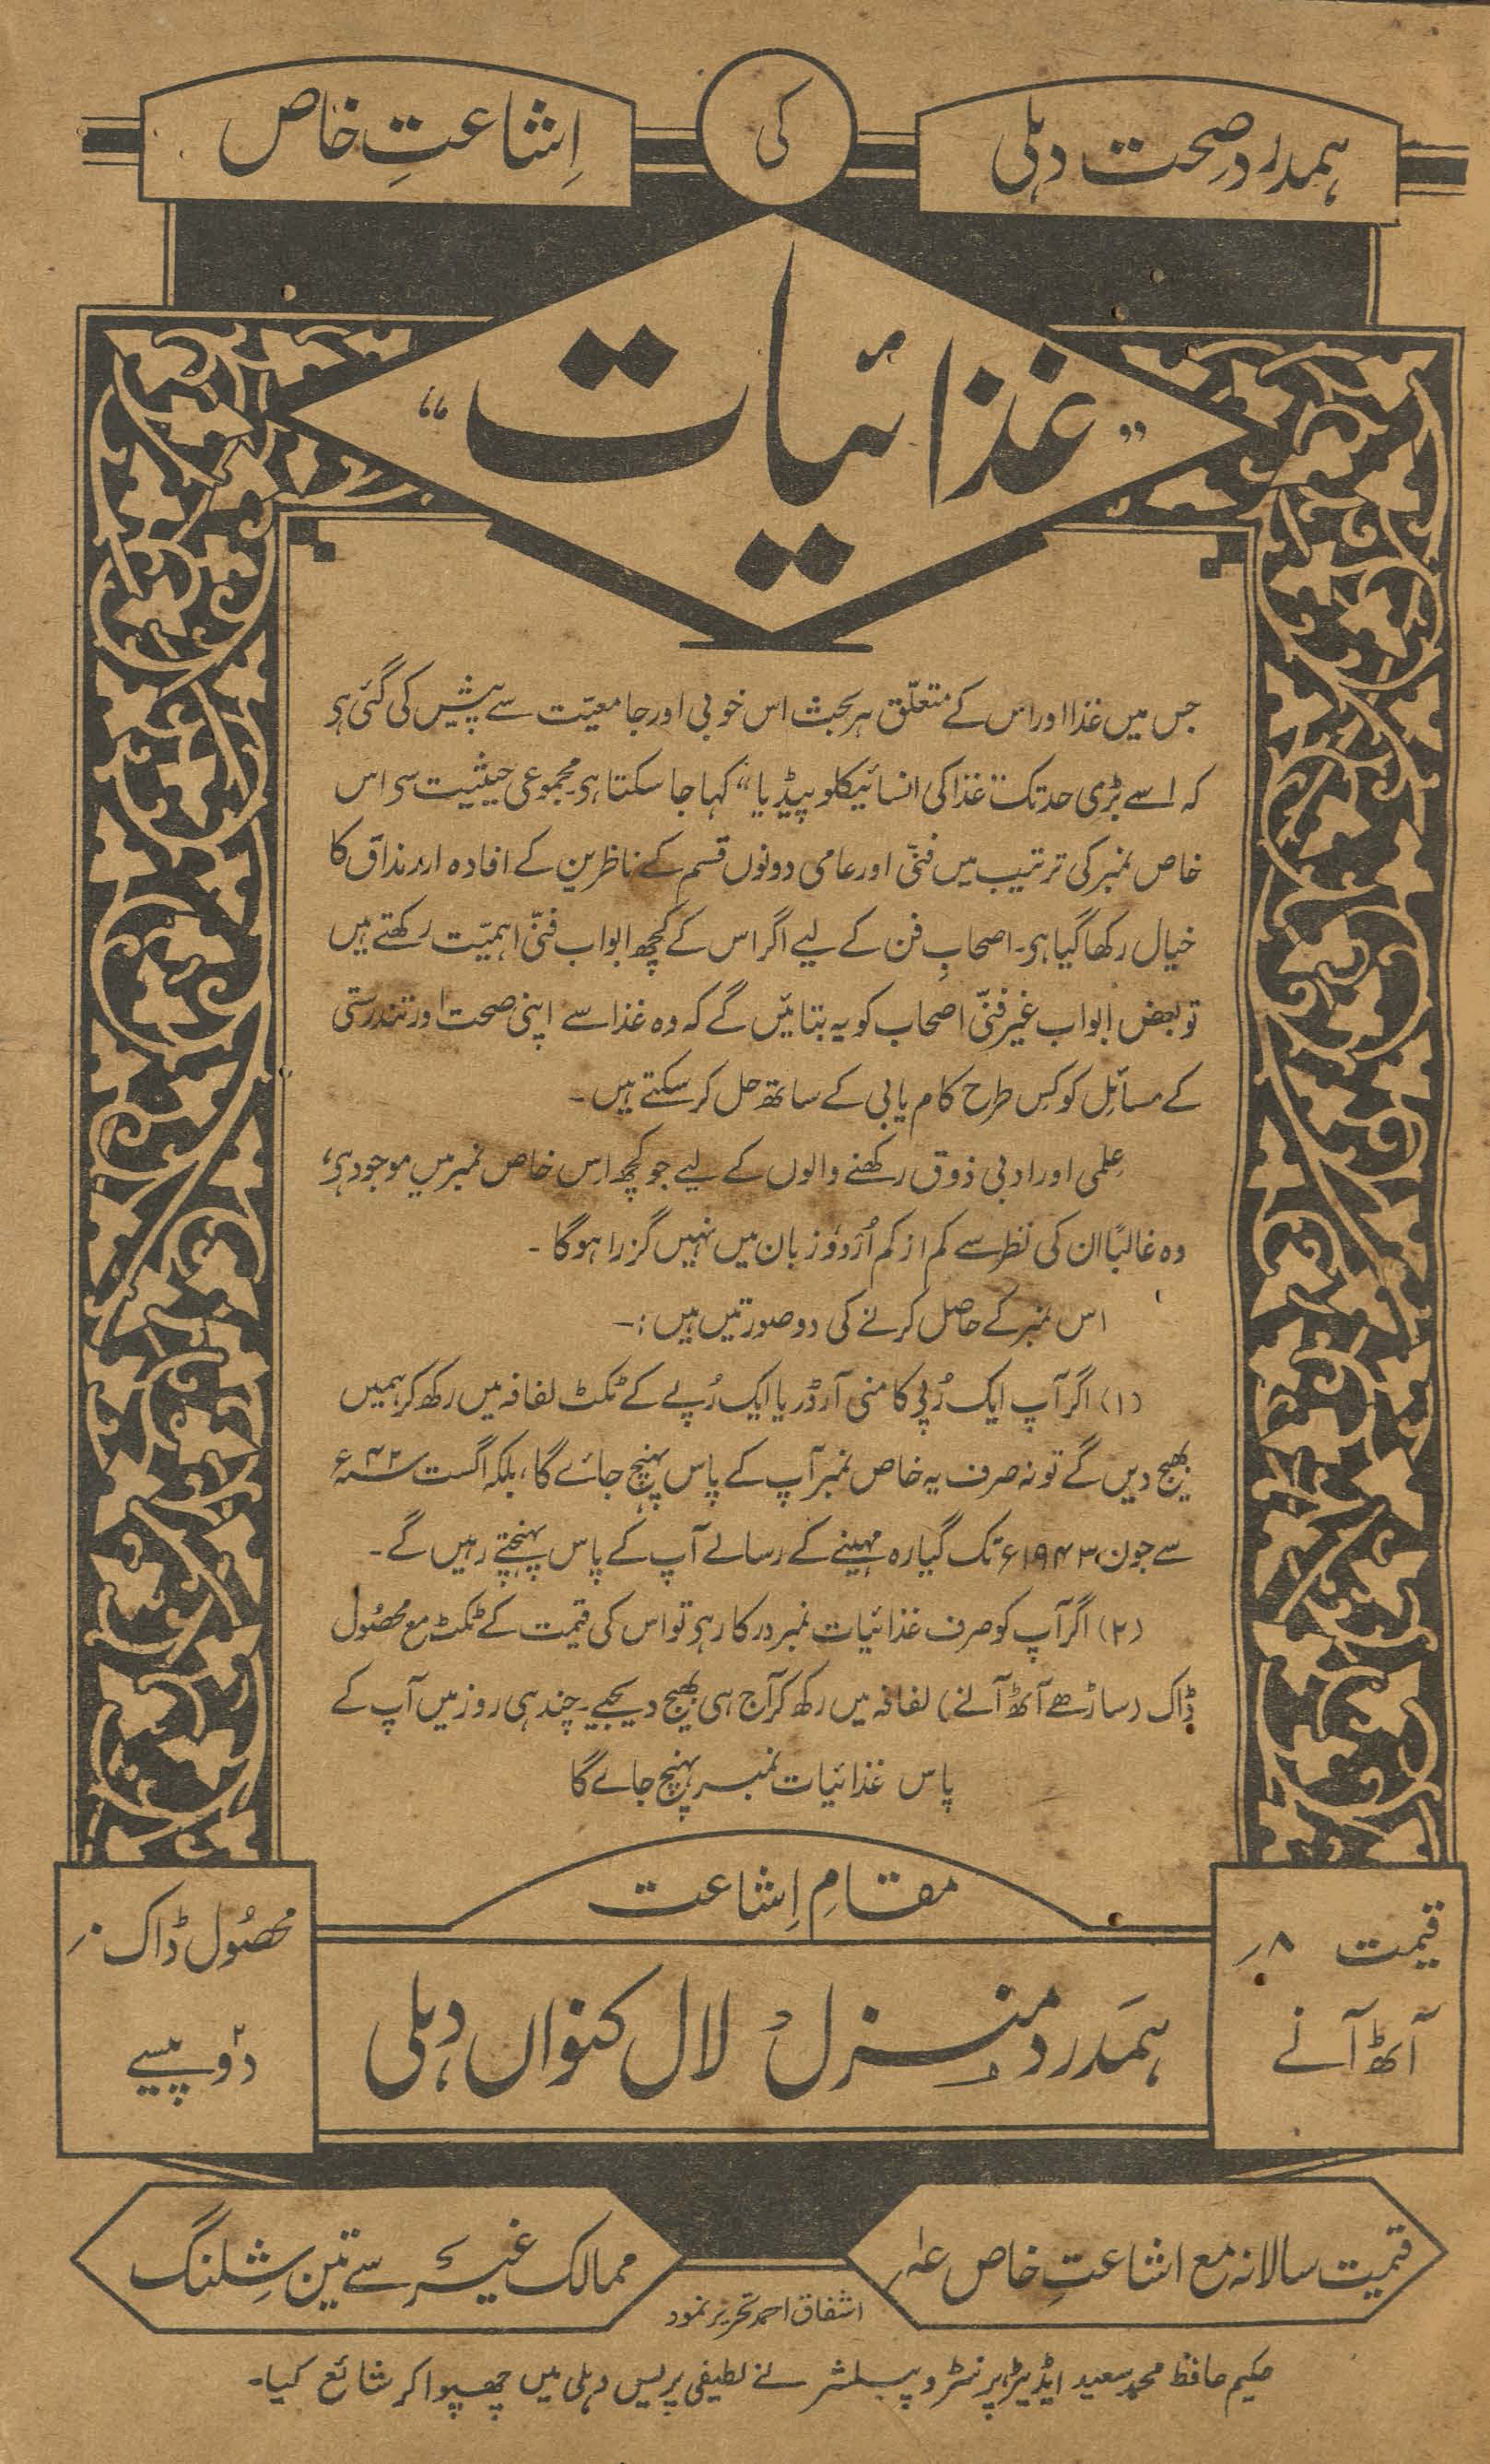 ہمدرد صحت دہلی
کی
اِشاعتِ خاص
”غذائیات“
جس میں غذا اور اس کے متعلّق ہر بحث اس خوبی اور جامعیّت سے پیش کی گئی ہی
کہ اسے بڑی حد تک ”غذا کی انسائیکلو پیڈیا“ کہا جا سکتا ہی۔ مجموعی حیثیت سی اس
خاص نمبر کی ترتیب میں فنّی اور عامی دونوں قسم کے ناظرین کے افادہ اور مذاق کا
خیال رکھا گیا ہی۔ اصحابِ فن کے لیے اگر اس کے کچھ ابواب فنّی اہمیّت رکھتے ہیں
تو بعض ابواب غیر فنّی اصحاب کو یہ بتائیں گے کہ وہ غذا سے اپنی صحت اور تندرستی
کے مسائل کو کس طرح کام یابی کے ساتھ حل کر سکتے ہیں۔
عِلمی اور ادبی ذوق رکھنے والوں کے لیے جو کچھ اِس خاص نمبر میں موجود ہی،
وہ غالبًا ان کی نظر سے کم از کم اُردو زبان میں نہیں گزرا ہوگا۔
اس نمبر کے حاصل کرنے کی دو صورتیں ہیں :۔
(۱) اگر آپ ایک رُپی کا منی آرڈر یا ایک رُپے کے ٹکٹ لفافہ میں رکھ کر ہمیں
بھیج دیں گے تو نہ صرف یہ خاص نمبر آپ کے پاس پہنچ جائے گا، بلکہ اگست ۴۲ء
سے جون ۱۹۴۳ء تک گیارہ مہینے کے رسالے آپ کے پاس پہنچتے رہیں گے۔
(۲) اگر آپ کو صرف غذائیات نمبر درکار ہی تو اس کی قیمت کے ٹکٹ مع محصُول
ڈاک (ساڑھے آٹھ آنے) لفافہ میں رکھ کر آج ہی بھیج دیجیے۔ چند ہی روز میں آپ کے
پاس غذائیات نمبر پہنچ جائے گا
مقامِ اِشاعت
قیمت ۸ر
آٹھ آنے
ہمدرد منزل لال کنواں دہلی
محصُول ڈاک
دو پیسے
قیمت سالانہ مع اشاعتِ خاص
ممالک غیر سے تین شِلنگ
اشفاق احمد تحریر نمود
حکیم حافظ محمد سعید ایڈیٹر، پرنٹر و پبلشر نے لطیفی پریس دہلی میں چھپوا کر شائع کیا۔